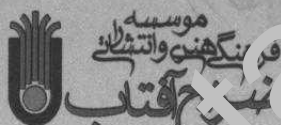 موسسه
فرهنگی هنری و انتشاراتی
آفتاب